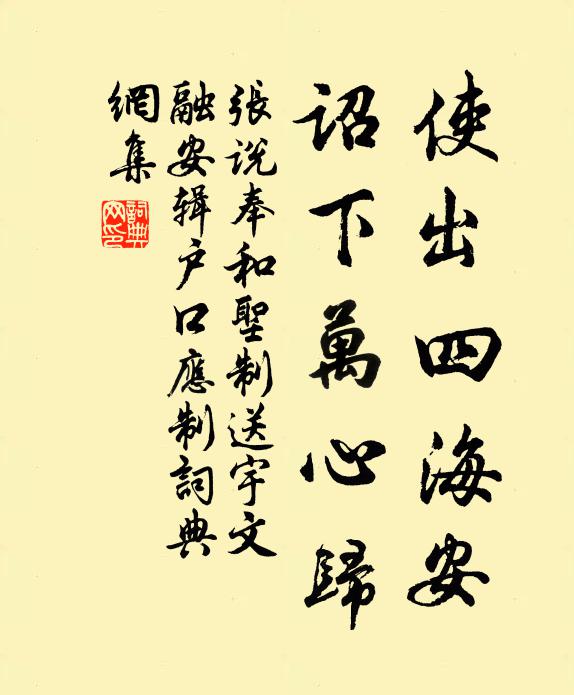 使出四海安
詔下萬心歸
張說奉和聖制送宇文
融安輯户口應制詞典
網集
詞典
网印